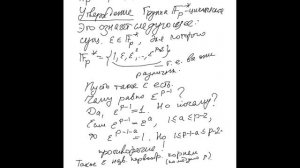 Утверждение Группа F_p^* - циклична
Это означает следующее:
сущ. ε ∈ F_p^*, для которого
F_p^* = {1, ε, ε², ..., ε^{p-2}}
т.е. все они
различны.
Пусть такое ε есть.
Чему равно ε^{p-1}?
Да, ε^{p-1} = 1. Но почему?
Если ε^{p-1} = ε^a, 1≤a≤p-2,
то ε^{p-1-a} = 1. Но 1≤p-1-a≤p-2.
противоречие!
Такое ε наз. первообр. корнем